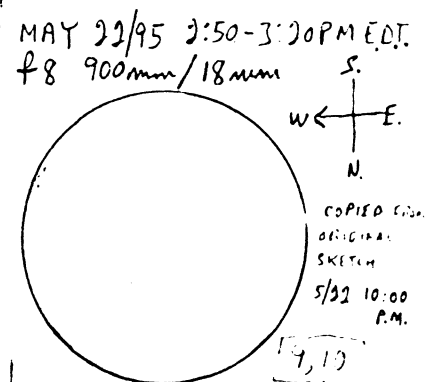 MAY 22/95 2:50-3:20PM E.D.T.
f8 900mm/18mm
S.
W E.
N.
COPIED FROM
ORIGINAL
SKETCH
5/22 10:00
P.M.